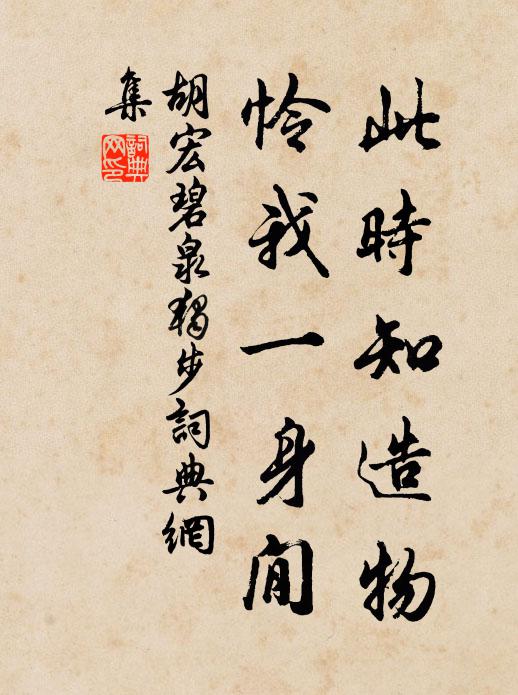 此時知造物
怜我一身閒
胡宏碧泉獨步詞典網
集
詞典
网印